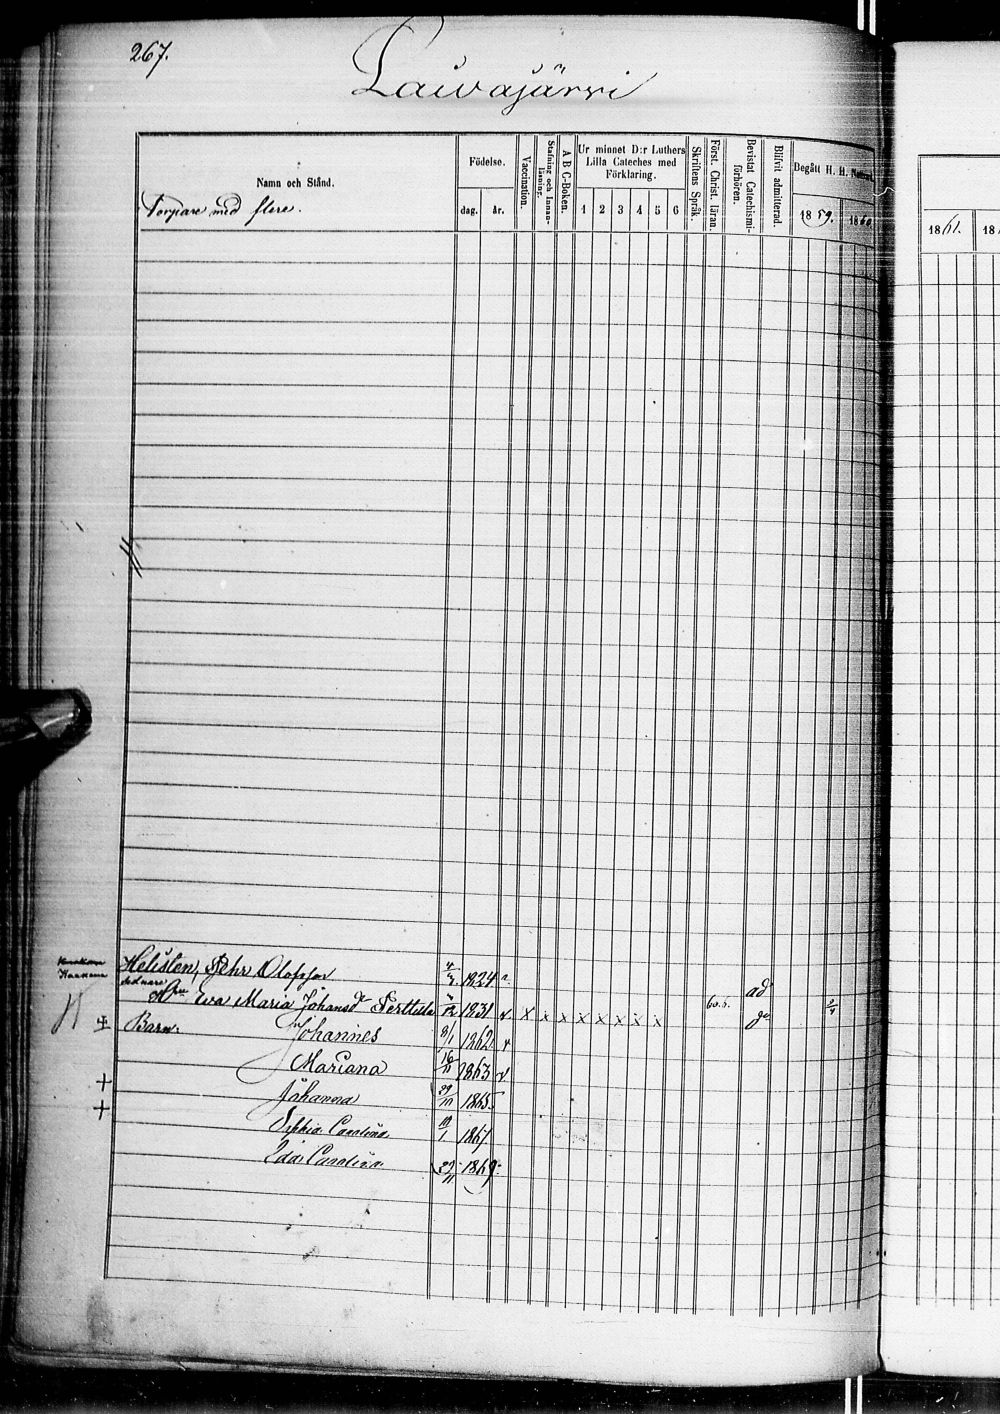 267.
Lauvajärvi
Namn och Stånd.
Torpare med flere.
Födelse.
dag. år.
Vaccination.
Stafning och Innan-läsning.
A B C-Boken.
Ur minnet D:r Luthers Lilla Cateches med Förklaring.
1 2 3 4 5 6
Skriftens Språk.
Först. Christ. läran.
Bevistat Catechismi-förhören.
Blifvit admitterad.
Degått H. H. Nattvard
1859. 1860
1861. 18
Helisten, Pehr Olofsson 1824
ad
Eva Maria Johansdr Perttula 1831 v x x x x x x x x
Barn: Johannes 8/1 1862 v
Mariana 16/11 1863 v
Johanna 1865
Sophia Carolina 10/1 1867
Ida Carolina 1869